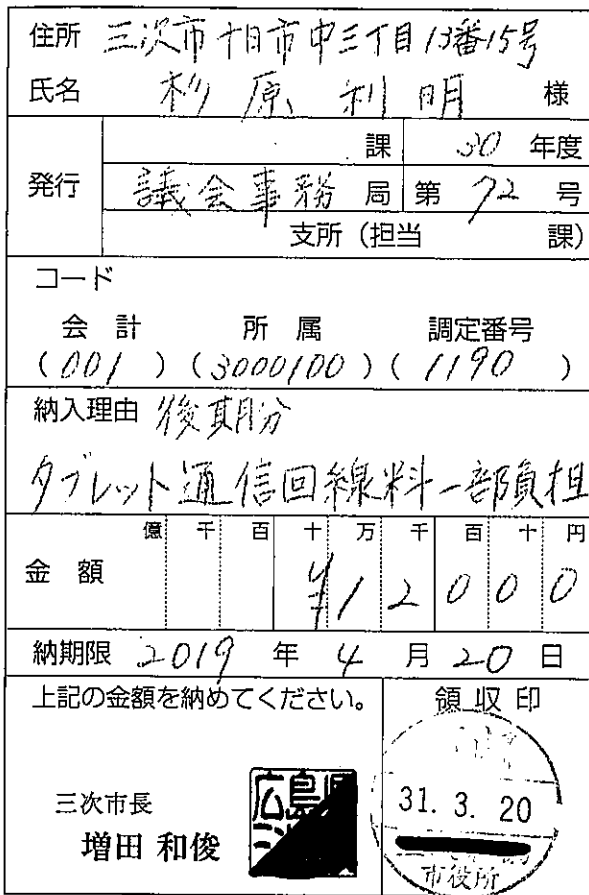 住所 三次市十日市中三丁目13番15号
氏名 杉原利明 様
課 30 年度
発行 議会事務局 第 72 号
支所(担当 課)
コード
会計 所属 調定番号
(001) (3000100) (1190)
納入理由 後期分
タブレット通信回線料一部負担
億 千 百 十 万 千 百 十 円
金額 ¥12000
納期限 2019 年 4 月 20 日
上記の金額を納めてください。 領収印
三次市長
増田 和俊
広島県
31. 3. 20
市役所